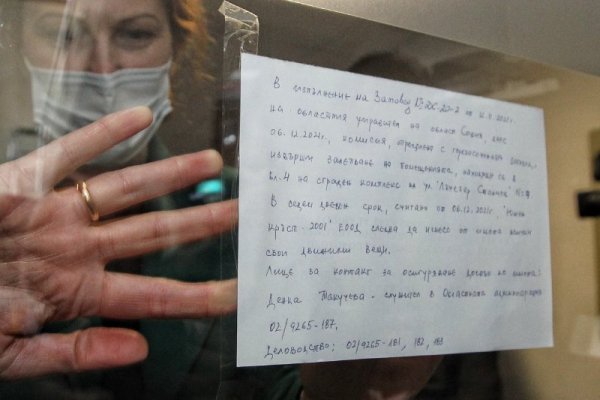 В изпълнение на Заповед № ОС-20-2 от
на областния управител на област София, днес
06.12.2021г., комисия, определена с горепосочената заповед,
извърши заемане на помещенията, находящи се в
вл. 4 на сграден комплекс на ул. "Лъчезар Станчев" №
В седем дневен срок, считано от 06.12.2021г. "Южен
кръст - 2001" ЕООД следва да изнесе от имота всички
свои движими вещи.
Лице за контакт за осигуряване достъп до имота:
Деяна - служител в Областната администрация
02/9265-187.
Деловодство: 02/9265-181, 182, 183